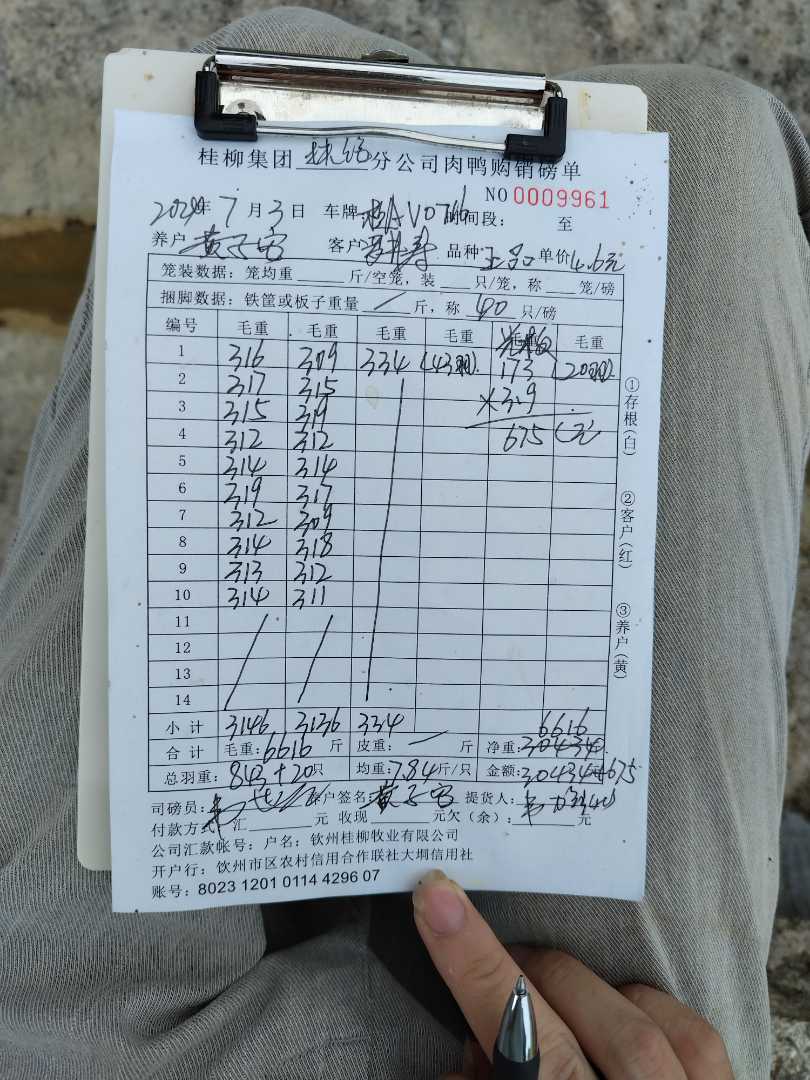 桂柳集团 分公司肉鸭购销磅单
NO 0009961
2024年 7 月 3 日 车牌 AV07 时间段: 至
养户 黄 客户 品种 正品 单价 4.6元
笼装数据: 笼均重 斤/空笼, 装 只/笼, 称 笼/磅
捆脚数据: 铁筐或板子重量 / 斤, 称 40 只/磅
编号 毛重 毛重 毛重 毛重 毛重
1 316 309 334 (43羽) 173 (20羽)
2 317 315 ×3.9
3 315 319 675 (元
4 312 312
5 314 314
6 319 317
7 312 309
8 314 318
9 313 312
10 314 311
11
12
13
14
小计 3146 3136 334 6616
合计 毛重: 6616 斤 皮重: 一 斤 净重: 30434
总羽重: 843+20 只 均重: 7.84 斤/只 金额: 30434+675
司磅员: 养户签名: 黄 提货人:
付款方式: 汇 元 收现 元欠(余): 元
公司汇款帐号: 户名: 钦州桂柳牧业有限公司
开户行: 钦州市区农村信用合作联社大垌信用社
账号: 8023 1201 0114 4296 07
①存根(白)
②客户(红)
③养户(黄)